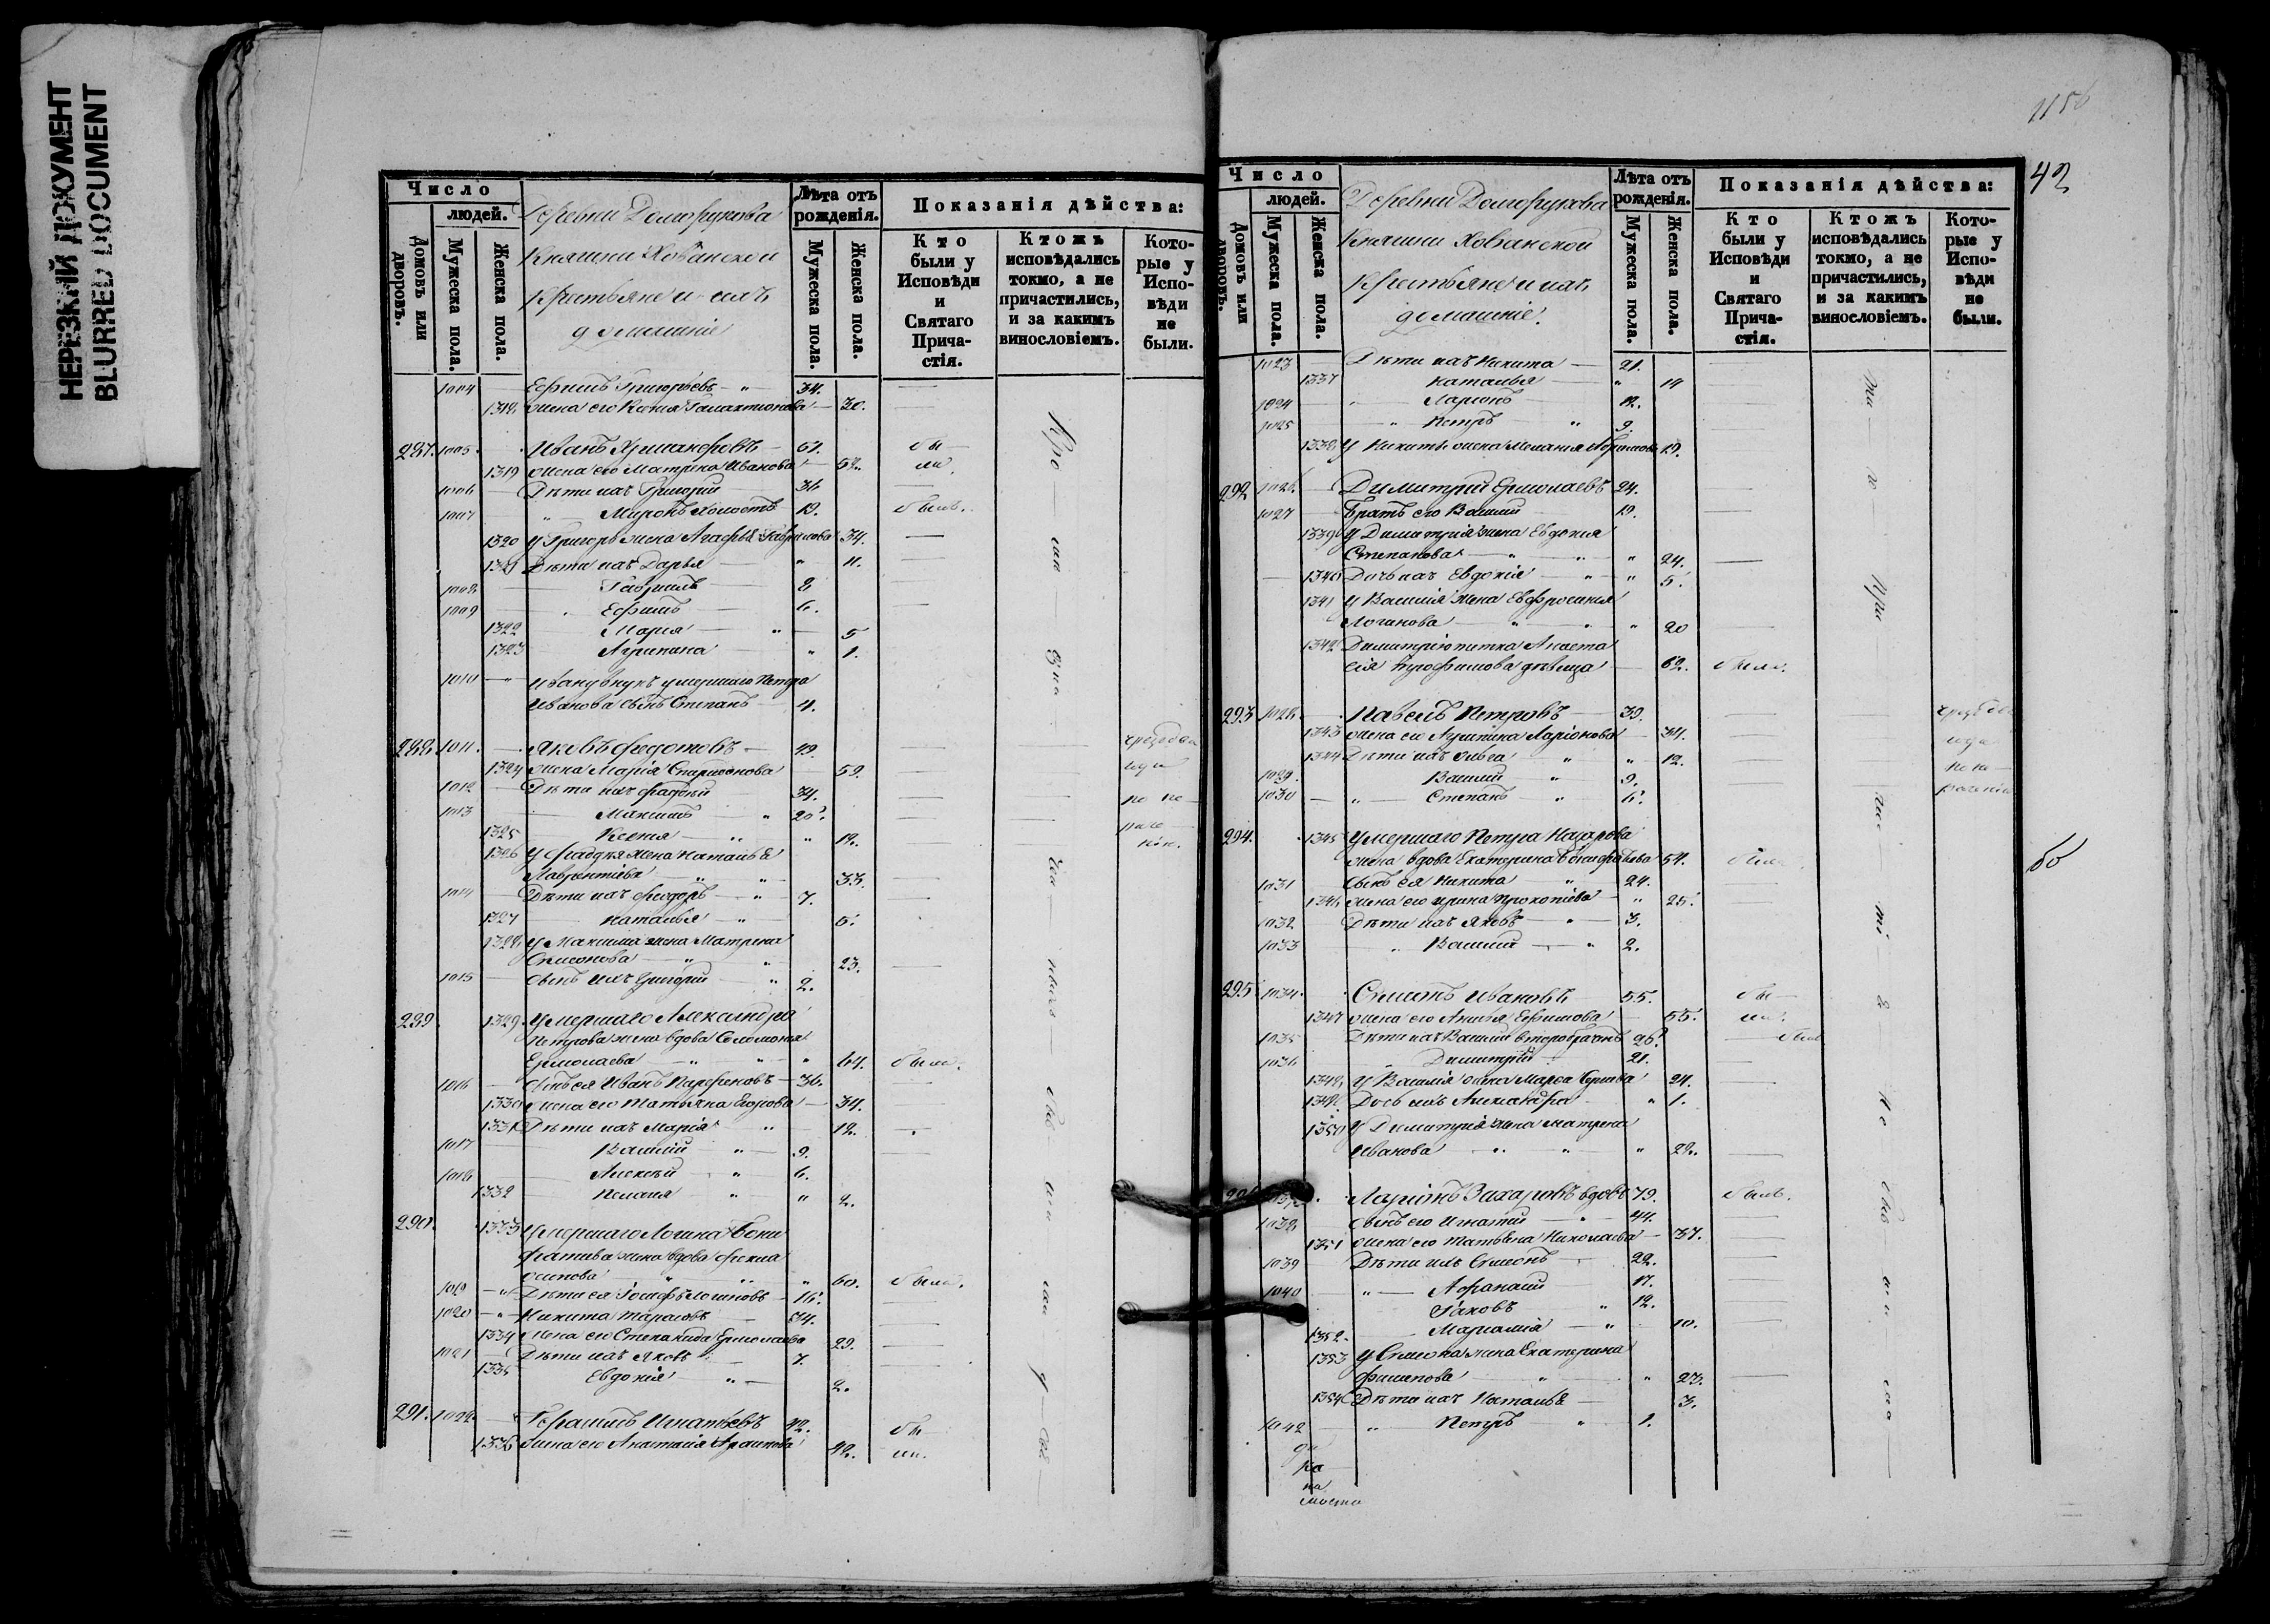 НЕРЕЗКИЙ ДОКУМЕНТ
BLURRED DOCUMENT
Число
людей.
Домовъ или дворовъ.
Мужеска пола.
Женска пола.
Деревни Долгорукова
Княгини Хованской
Крестьяне и ихъ
домашніе
Лѣта отъ рожденія.
Мужеска пола.
Женска пола.
Показанія дѣйства:
Кто были у Исповѣди и Святаго Причастія.
Ктожъ исповѣдались токмо, а не причастились, и за какимъ винословіемъ.
Которые у Исповѣди не были.
1004 Ефимъ Григорьевъ 34.
1318 жена его Ксенія Галактионова 30.
287. 1005. Иванъ 61. бы
1319 жена его Матрена Иванова 52. ли.
1006 Дѣти ихъ Григорій 36
1007 Миронъ холостъ 19. былъ.
1320 У Григорья жена Агафья 34.
1321 Дѣти ихъ Дарья 11.
1008 Гавріилъ 8
1009 Ефимъ 6.
1322 Марья 5
1323 Агрипина 1.
1010 Ивану внукъ умершаго Петра
Иванова сынъ Степанъ 4.
288. 1011. Яковъ Федотовъ 49.
1324 жена Марія Спиридонова 59.
1012 Дѣти ихъ 34.
1013 Максимъ 20.
1325 Ксенія 12.
1326 жена Наталья
Лаврентіева 33.
1014 Дѣти ихъ Федоръ 7.
1327 Наталья 5.
1328 У Максима жена Матрена
Симонова 23.
1015 Сынъ ихъ Григорій 2.
289 1329 Умершаго Александра
Петрова жена вдова Соломонія
Ермолаева 64. была.
1016 Сынъ ея Иванъ Парфеновъ 36.
1330 жена его Татьяна Егорова 34.
1331 Дѣти ихъ Марія 12.
1017 Василій 9.
1018 Алексѣй 6.
1332 Пелагія 2.
290. 1333 Умершаго Логина Бони
фатьева жена вдова Фекла
Осипова 60. была.
1019 Дѣти ея Іосифъ Логиновъ 16.
1020 Никита Тарасовъ 34.
1334 жена его Степанида Ермолаева 29.
1021 Дѣти ихъ Яковъ 7.
1335 Евдокія 2.
291. 1022 Герасимъ Игнатьевъ 42. бы
1336 жена его 42. ли.
1156
42
Число
людей.
Домовъ или дворовъ.
Мужеска пола.
Женска пола.
Деревни Долгорукова
Княгини Хованской
Крестьяне и ихъ
домашніе.
Лѣта отъ рожденія.
Мужеска пола.
Женска пола.
Показанія дѣйства:
Кто были у Исповѣди и Святаго Причастія.
Ктожъ исповѣдались токмо, а не причастились, и за какимъ винословіемъ.
Которые у Исповѣди не были.
1023 Дѣти ихъ Никита 21.
1337 Наталья 14
1024 Ларіонъ 12.
1025 Петръ 9.
1338 У Никиты жена Меланія 19.
292 1026 Димитрій Ермолаевъ 24.
1027 Братъ его Василій 19.
1339 У Димитрія жена Евдокія
Степанова 24.
1340 Дочь ихъ Евдокія 5.
1341 У Василія жена Евфросинія
Логинова 20
1342 Димитрію тетка Анаста
сія Трофимова дѣвица 62. была.
293 1028. Павелъ Петровъ 39.
1343 жена его Агрипина Ларіонова 34.
1344 Дѣти ихъ Ольга 12.
1029. Василій 9.
1030 Степанъ 6.
294. 1345 Умершаго Петра Назарова
жена вдова Екатерина Бонифатьева 54. была
1031 Сынъ ея Никита 24.
1346 жена его Ирина Прокопіева 25.
1032 Дѣти ихъ Яковъ 3.
1033 Василій 2.
60
295. 1034. Симонъ Ивановъ 55. бы
1347 жена его Анисья Ефимова 55. ли.
1035 Дѣти ихъ Василій второбрачнъ 26. былъ
1036 Димитрій 21.
1348 У Василія жена Марѳа 24.
1349 Дочь ихъ Александра 1.
1350 У Димитрія жена Матрена
Иванова 22.
Ларіонъ Захаровъ вдовъ 79. былъ.
1038 Сынъ его Игнатій 44.
1351 жена его Татьяна Николаева 37.
1039 Дѣти ихъ Симонъ 22.
1040 Афанасій 17.
Яковъ 12.
1352. Маріамія 10.
1353 У Симона жена Екатерина
Филипова 23.
1354 Дѣти ихъ Наталья 3.
1042 Петръ 1.